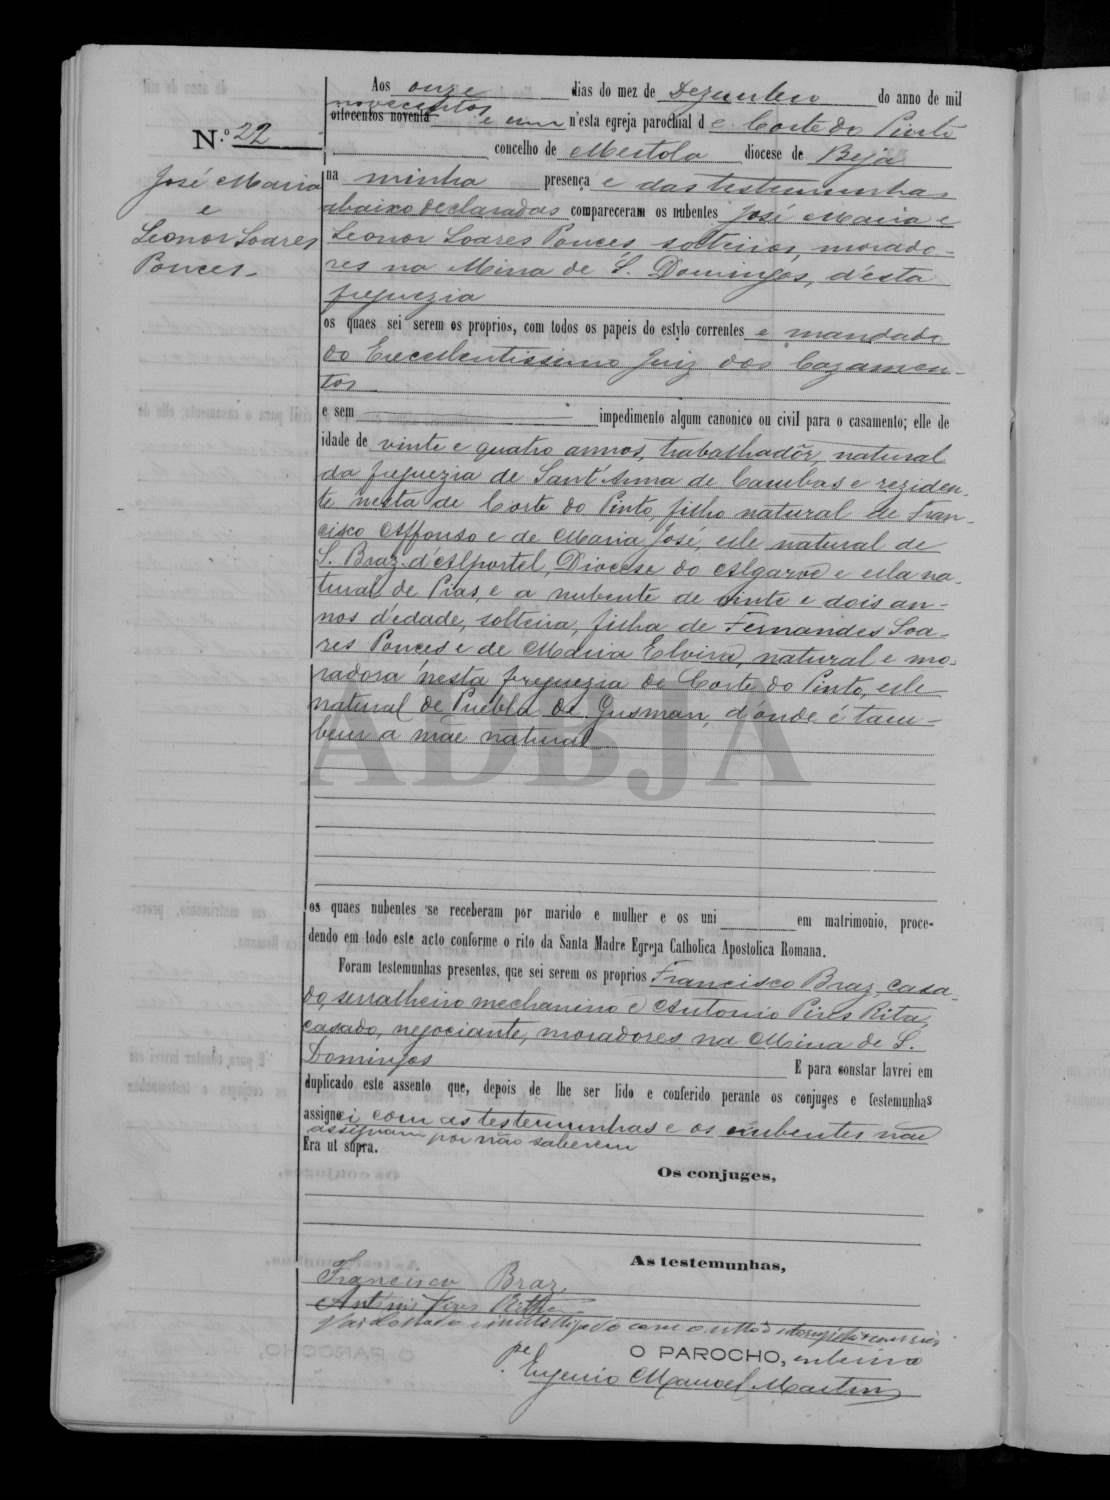 Aos onze dias do mez de Dezembro do anno de mil
novecentos
oitocentos noventa e um n'esta egreja parochial de Corte do Pinto
N.º 22
concelho de Mertola diocese de Beja
José Maria
e
Leonor Soares
Ponces
na minha presença e das testemunhas
abaixo declaradas compareceram os nubentes José Maria e
Leonor Soares Ponces, solteiros, morado-
res na Mina de S. Domingos, d'esta
freguezia
os quaes sei serem os proprios, com todos os papeis do estylo correntes e mandado
do Excellentissimo Juiz dos Cazamen-
tos
e sem impedimento algum canonico ou civil para o casamento; elle de
idade de vinte e quatro annos, trabalhadôr, natural
da freguezia de Sant'Anna de Cambas e reziden-
te nesta de Corte do Pinto, filho natural de Fran-
cisco Affonso e de Maria José, elle natural de
S. Braz d'Alportel, Diocese do Algarve e ella na-
tural de Pias, e a nubente de vinte e dois an-
nos d'edade, solteira, filha de Fernandes Soa-
res Ponces e de Maria Elvira, natural e mo-
radora nesta freguezia de Corte do Pinto, elle
natural de Puebla de Gusman, d'onde é tam-
bem a mãe natural
ADBJA
os quaes nubentes se receberam por marido e mulher e os uni em matrimonio, proce-
dendo em todo este acto conforme o rito da Santa Madre Egreja Catholica Apostolica Romana.
Foram testemunhas presentes, que sei serem os proprios Francisco Braz, casa-
do, serralheiro mechanino e Antonio Pires Rita,
casado, negociante, moradores na Mina de S.
Domingos E para constar lavrei em
duplicado este assento que, depois de lhe ser lido e conferido perante os conjuges e testemunhas
assignei com as testemunhas e os nubentes não
assignam por não saberem
Era ut supra.
Os conjuges,
As testemunhas,
Francisco Braz
Antonio Pires Ritta
O PAROCHO, interino
Pe. Eugenio Manoel Martins